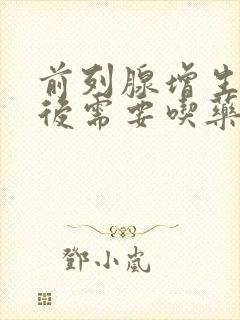 前列腺增生
後需要喫藥
鄧小嵐